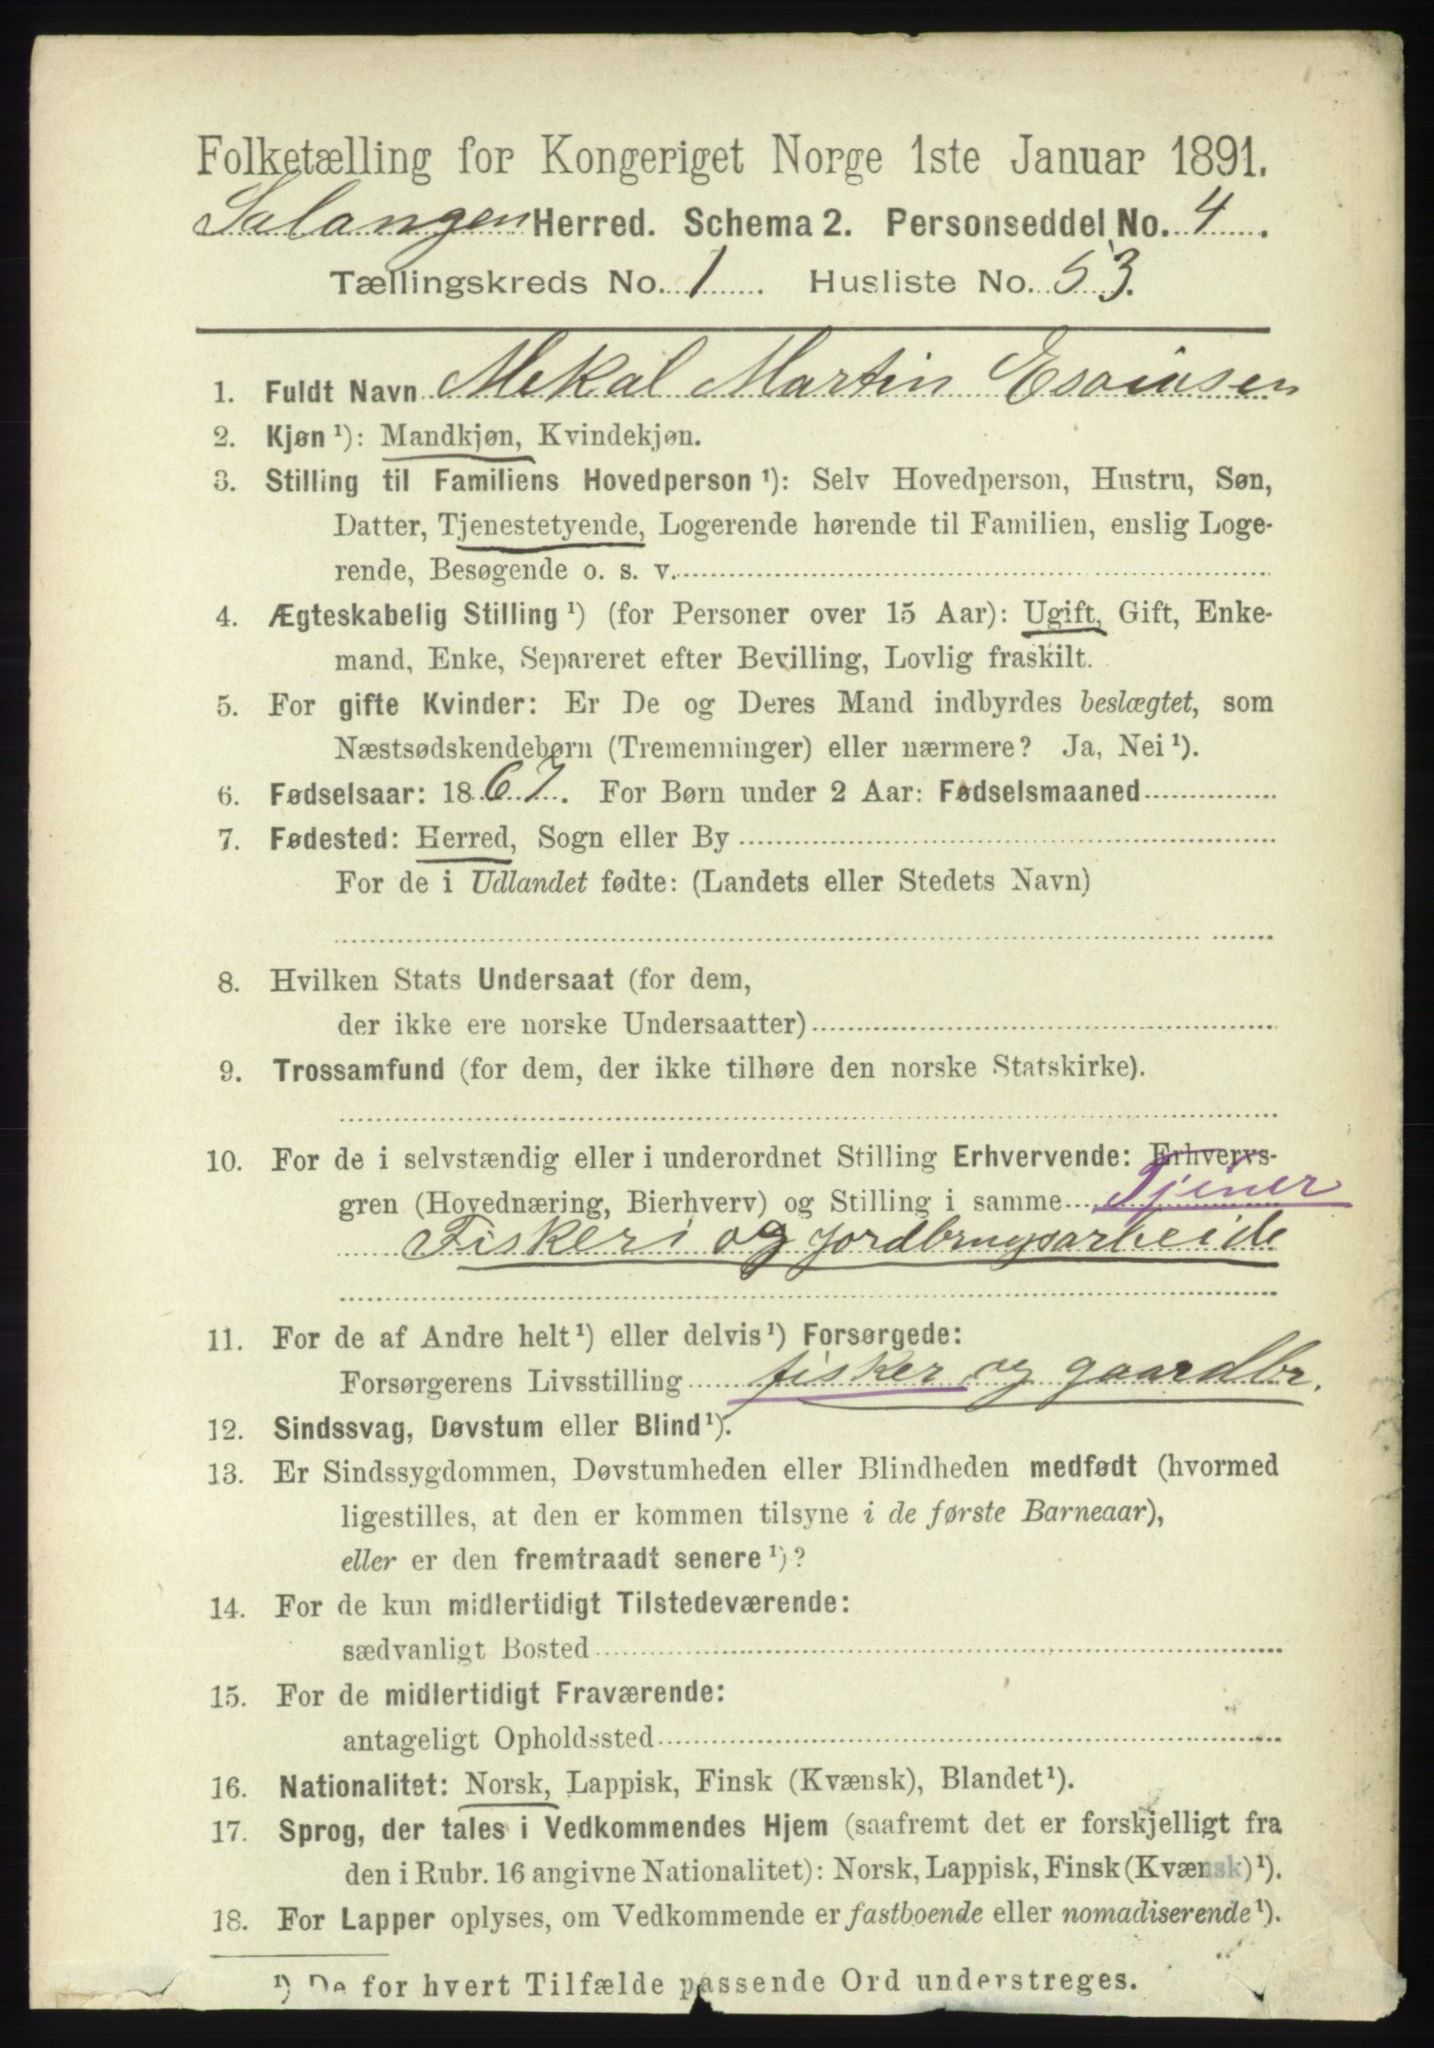 Folketælling for Kongeriget Norge 1ste Januar 1891.
Salangen Herred. Schema 2. Personseddel No. 4.
Tællingskreds No. 1. Husliste No. 53.
1. Fuldt Navn Mekal Martin Esaiasen
2. Kjøn ¹): Mandkjøn, Kvindekjøn.
3. Stilling til Familiens Hovedperson ¹): Selv Hovedperson, Hustru, Søn,
Datter, Tjenestetyende, Logerende hørende til Familien, enslig Loge-
rende, Besøgende o. s. v.
4. Ægteskabelig Stilling ¹) (for Personer over 15 Aar): Ugift, Gift, Enke-
mand, Enke, Separeret efter Bevilling, Lovlig fraskilt.
5. For gifte Kvinder: Er De og Deres Mand indbyrdes beslægtet, som
Næstsødskendebørn (Tremenninger) eller nærmere? Ja, Nei ¹).
6. Fødselsaar: 1867. For Børn under 2 Aar: Fødselsmaaned
7. Fødested: Herred, Sogn eller By
For de i Udlandet fødte: (Landets eller Stedets Navn)
8. Hvilken Stats Undersaat (for dem,
der ikke ere norske Undersaatter)
9. Trossamfund (for dem, der ikke tilhøre den norske Statskirke).
10. For de i selvstændig eller i underordnet Stilling Erhvervende: Erhvervs-
gren (Hovednæring, Bierhverv) og Stilling i samme Tjener
Fiskeri og jordbrugsarbeide
11. For de af Andre helt ¹) eller delvis ¹) Forsørgede:
Forsørgerens Livsstilling fisker og gaardbr.
12. Sindssvag, Døvstum eller Blind ¹).
13. Er Sindssygdommen, Døvstumheden eller Blindheden medfødt (hvormed
ligestilles, at den er kommen tilsyne i de første Barneaar),
eller er den fremtraadt senere ¹)?
14. For de kun midlertidigt Tilstedeværende:
sædvanligt Bosted
15. For de midlertidigt Fraværende:
antageligt Opholdssted
16. Nationalitet: Norsk, Lappisk, Finsk (Kvænsk), Blandet ¹).
17. Sprog, der tales i Vedkommendes Hjem (saafremt det er forskjelligt fra
den i Rubr. 16 angivne Nationalitet): Norsk, Lappisk, Finsk (Kvænsk) ¹).
18. For Lapper oplyses, om Vedkommende er fastboende eller nomadiserende ¹).
¹) De for hvert Tilfælde passende Ord understreges.